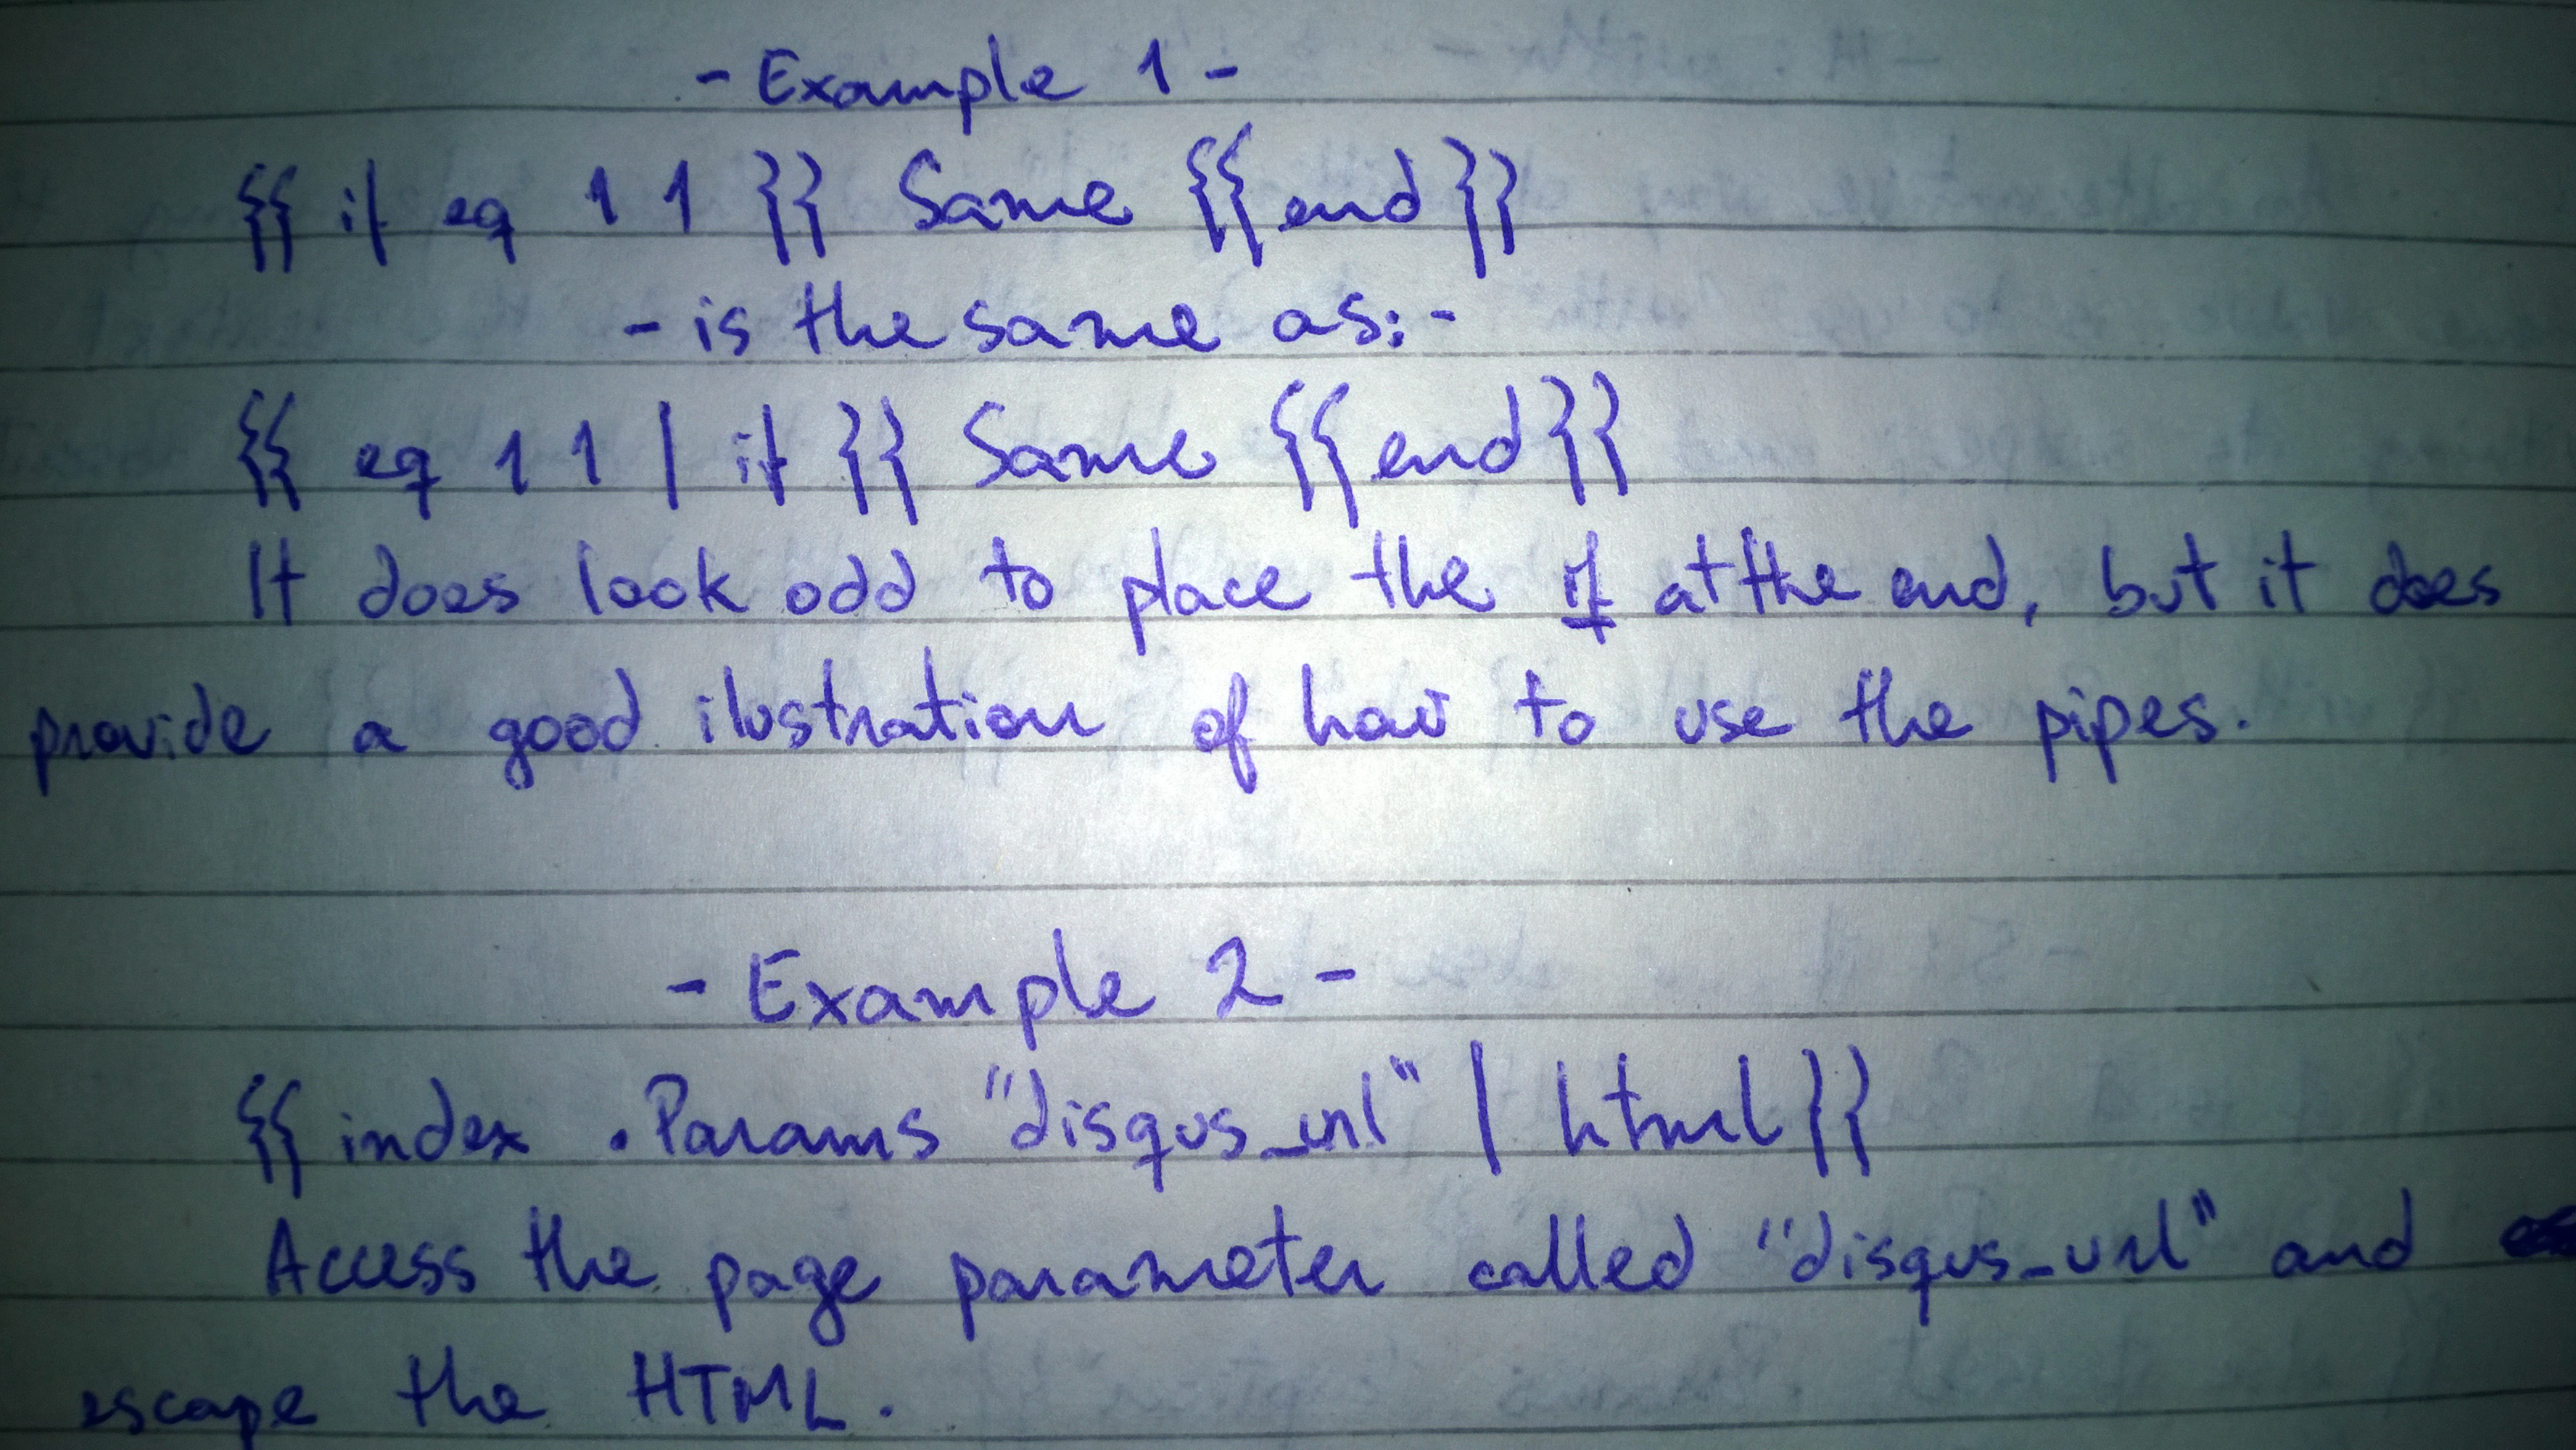 - Example 1 -
{{ if eq 1 1 }} Same {{end}}
- is the same as: -
{{ eq 1 1 | if }} Same {{end}}
It does look odd to place the if at the end, but it does
provide a good ilustration of how to use the pipes.
- Example 2 -
{{index .Params "disqus_url" | html}}
Access the page parameter called "disqus_url" and
escape the HTML.